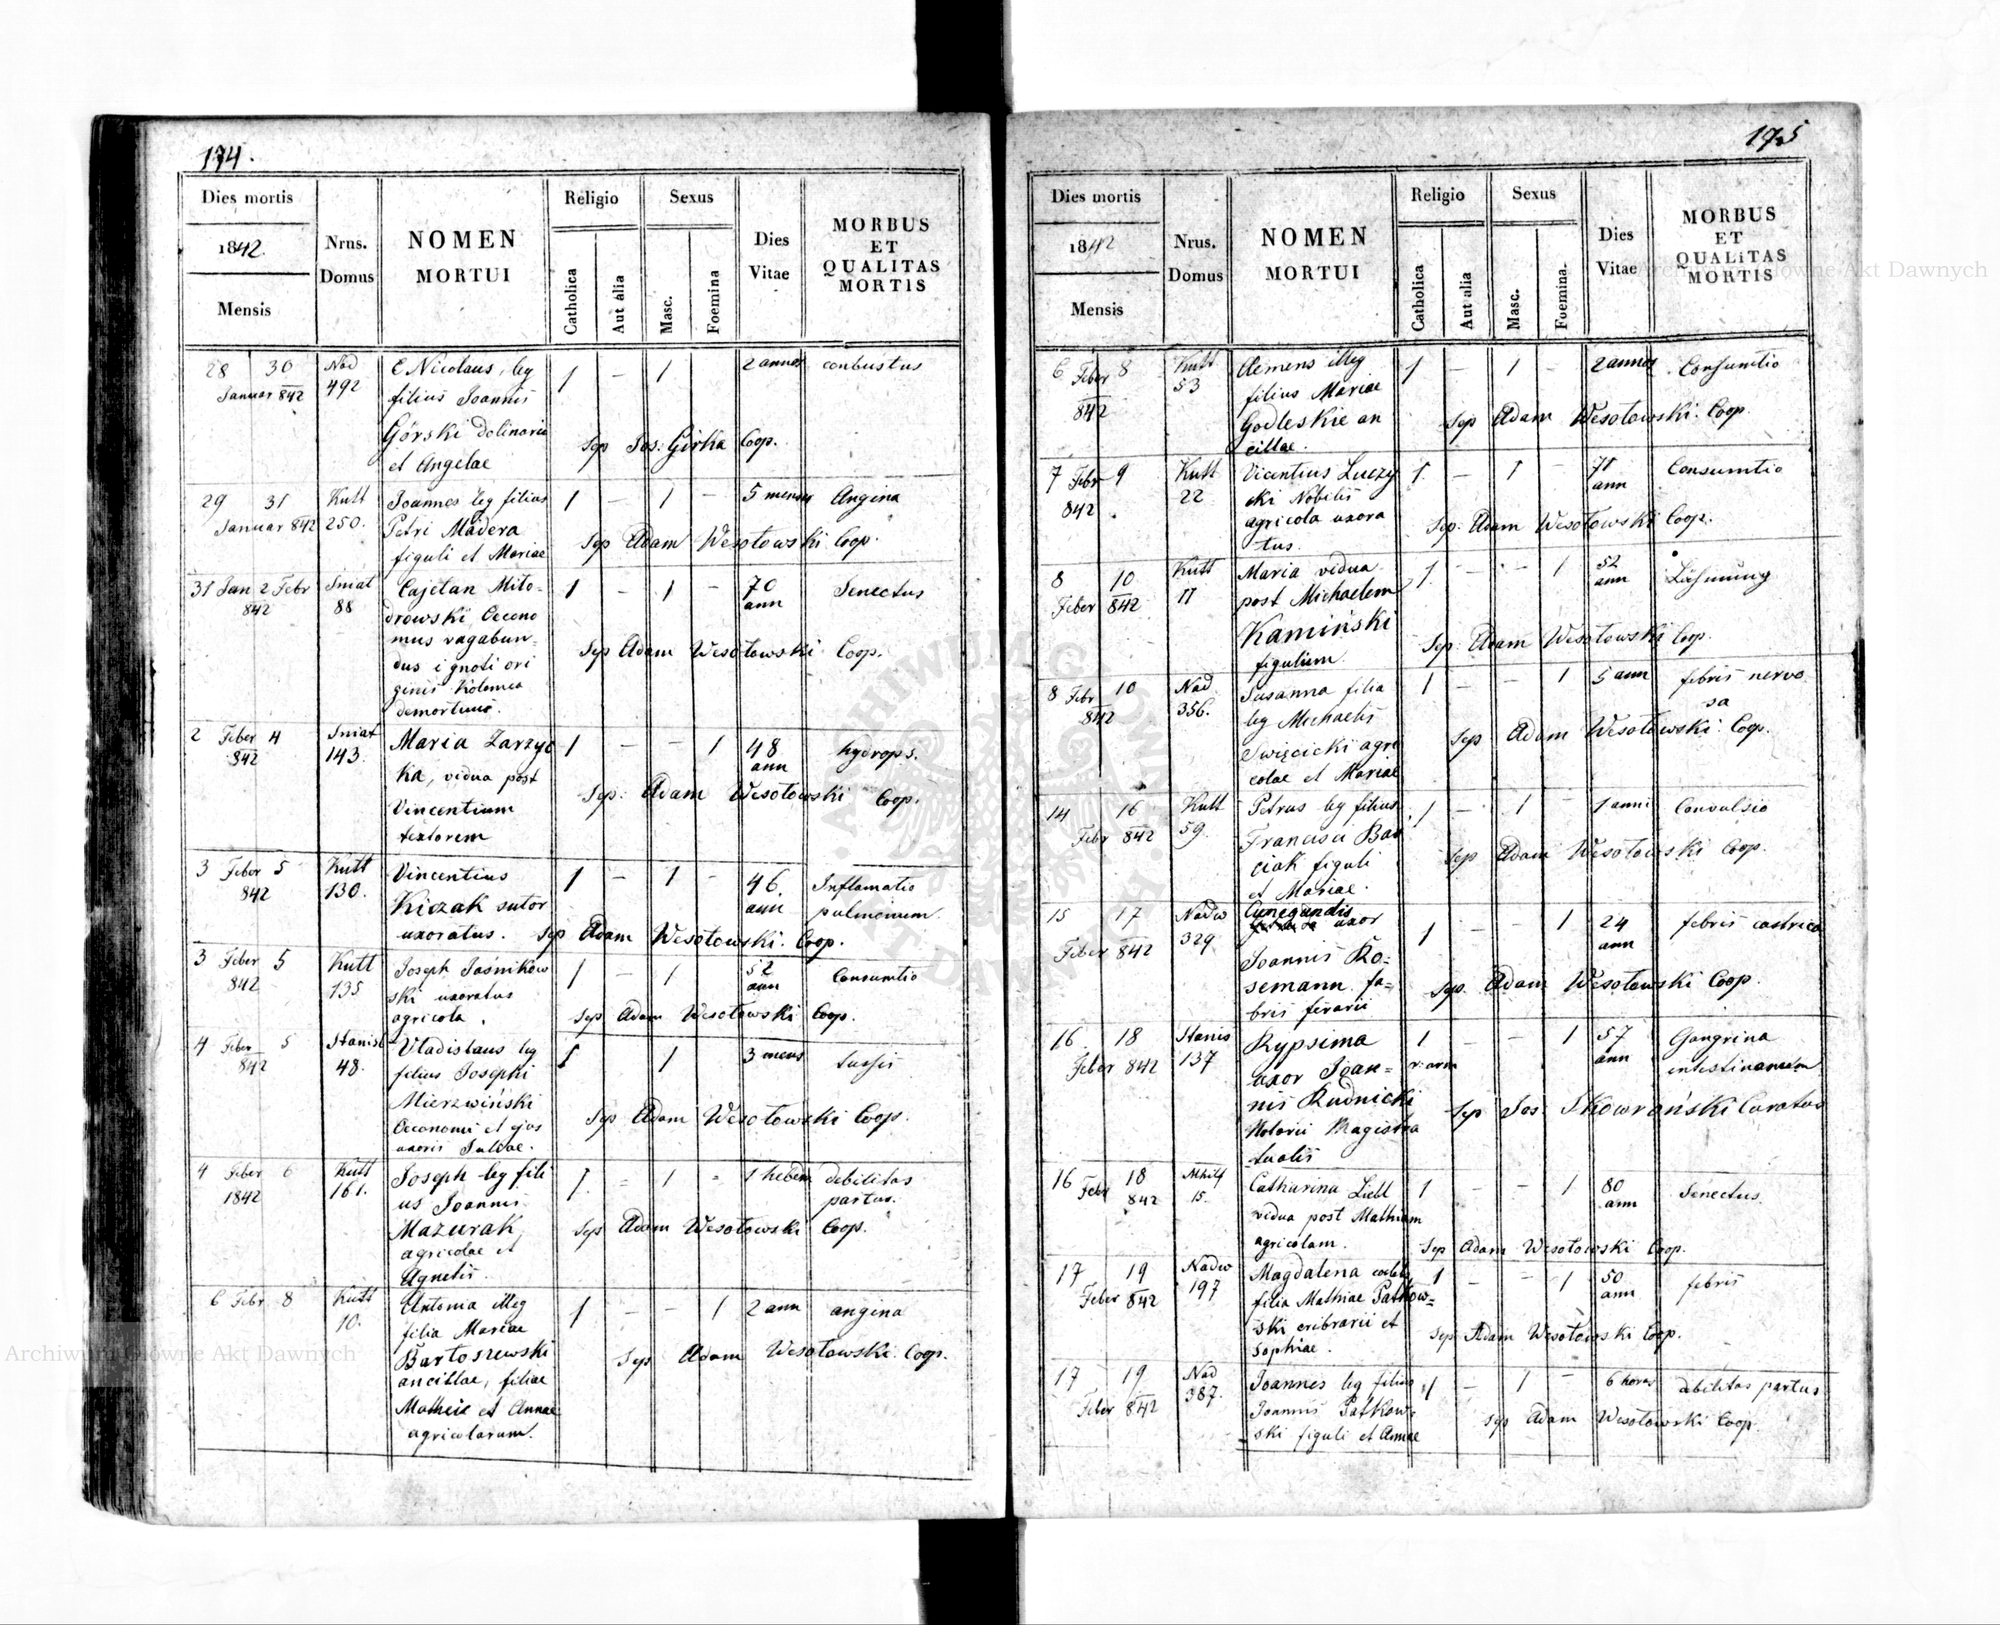 174.
Dies mortis
1842.
Mensis
Nrus.
Domus
NOMEN
MORTUI
Religio
Catholica
Aut alia
Sexus
Masc.
Foemina
Dies
Vitae
MORBUS
ET
QUALITAS
MORTIS
28 30 Nad C. Nicolaus, leg 1 – 1 2 annos conbustus
Januar 842 492 filius Joannis
Górski dolinarii Sep Jos: Girka Coop.
et Angelae
29 31 Kutt Joannes leg filius 1 – 1 – 5 menses Angina
Januar 842 250. Petri Madera
figuli et Mariae Sep Adam Wesołowski Coop.
31 Jan 2 Febr Sniat Cajetan Mito- 1 – 1 – 70 Senectus
842 88 drowski Oecono ann
mus vagabun- Sep Adam Wesołowski Coop.
dus ignoti ori
ginis Kolomea
demortuus.
2 Feber 4 Sniat Maria Zarzyc 1 – – 1 48 hydrops.
842 143. ka, vidua post ann
Vincentium Sep. Adam Wesołowski Coop.
textorem
3 Feber 5 Kutt Vincentius 1 – 1 – 46. Inflamatio
842 130. Kiczak sutor ann pulmonum.
uxoratus. Sep Adam Wesołowski. Coop.
3 Feber 5 Kutt Joseph Jaśnikow 1 – 1 52 Consumtio
842 135 ski uxoratus ann
agricola. Sep Adam Wesołowski Coop.
4 Feber 5 Stanisl Vladislaus leg 1 1 3 mens tussis
842 48. filius Josephi
Mierzwiński Sep Adam Wesołowski Coop.
Oeconomi et ejus
uxoris Juliae.
4 Feber 6 Kutt Joseph leg fili 1 = 1 = 1 hebdm debilitas
1842 161. us Joannis partus.
Mazurak Sep Adam Wesołowski Coop.
agricolae et
Agnetis.
6 Febr 8 Kutt Antonia illeg 1 – – 1 2 ann angina
10. filia Mariae
Bartoszewski Sep Adam Wesołowski. Coop.
ancillae, filiae
Matheie et Annae
agricolarum.
175
Dies mortis
1842
Mensis
Nrus.
Domus
NOMEN
MORTUI
Religio
Catholica
Aut alia
Sexus
Masc.
Foemina.
Dies
Vitae
MORBUS
ET
QUALITAS
MORTIS
6 Feber 8 Kutt Clemens illeg 1 – 1 – 2 annos Consumtio
842 53 filius Mariae
Godleskie an Sep Adam Wesołowski. Coop.
cillae.
7 Febr 9 Kutt Vicentius Luczy 1 – 1 – 71 Consumtio
842 22 cki Nobilis ann
agricola uxora Sep. Adam Wesołowski Coop.
tus.
8 10 Kutt Maria vidua 1 – – 1 52 Lähmung
Feber 842 11 post Michaelem ann
Kamiński Sep. Adam Wesołowski Coop.
figulum
8 Febr 10 Nad. Susanna filia 1 – – 1 5 ann febris nervo
842 356. leg Michaelis sa
Święcicki agri Sep Adam Wesołowski. Coop.
colae et Mariae
14 16 Kutt Petrus leg filius 1 – 1 – 1 anni Convulsio
Febr 842 59. Francisci Bar
ciak figuli Sep Adam Wesołowski Coop.
et Mariae.
15 17 Nadw Cunegundis 1 1 24 febris castrica
Feber 842 329. uxor ann
Joannis Ro=
semann. fa= Sep. Adam Wesołowski Coop.
bris ferarii
16 18 Stanis Rypsima 1 – – 1 57 Gangrina
Feber 842 137 uxor Joan= r: arm ann intestinarum
nis Rudnicki Sep Jos. Skowroński Curatus
Notarii Magistra
tualis
16 Febr 18 Mhilf Catharina Liebl 1 – – 1 80 Senectus.
842 15. vidua post Mathiam ann
agricolam. Sep Adam Wesołowski Coop.
17 19 Nadw Magdalena coelebs 1 – – 1 50 febris
Feber 842 197 filia Mathiae Patkow= ann
ski cribrarii et Sep Adam Wesołowski Coop.
Sophiae.
17 19 Nad Joannes leg filius 1 – 1 – 6 horas debilitas partus
Feber 842 387. Joannis Patkow-
ski figuli et Annae Sep Adam Wesołowski Coop
Archiwum Główne Akt Dawnych
Archiwum Główne Akt Dawnych
ARCHIWUM GŁÓWNE AKT DAWNYCH